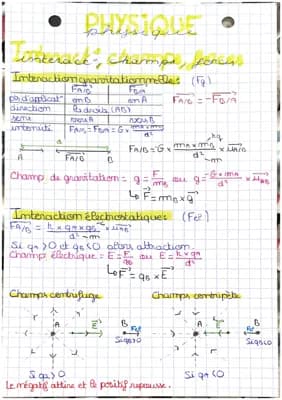 PHYSIQUE
physique
Interact°, champs, forces
Interaction gravitationnelle : (Fg)
FA/B FB/A
pt d'applicat° en B en A
direction la droite (AB)
sens vers A vers B
intensité FA/B = FB/A = G × mA × mB / d²
FA/B = -FB/A
A d B
FA/B
FA/B = G × mA × mB / d² × uAB
kg
m
Champ de gravitation : g = F / m ou g = G × mA / d² × uAB
↳ F = mB × g
Interaction électrostatique : (Fe)
FA/B = k × qA × qB / d² × uAB
m
Si qA > 0 et qB < 0 alors attraction.
Champ électrique : E = F / qB ou E = k × qA / d²
↳ F = qB × E
Champs centrifuge Champs centripète
A E B Fe
Si qB > 0
A E B Fe
Si qB < 0
Si qA > 0 Si qA < 0
Le négatif attire et le positif repousse.